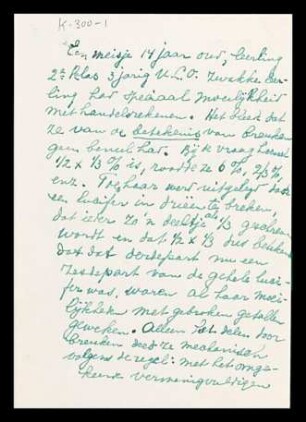 K-300-1
Een meisje 14 jaar oud, leerling
2e klas 3 jarig U.L.O. Zwakke leer-
ling had speciaal moeilijkheid
met handelsrekenen. Het bleek dat
ze van de betekenis van breuken
geen benul had. Bij de vraag hoeveel
1/2 x 1/3 is, raadde ze 6%, 2/3 %,
enz. Toen haar werd uitgelegd dat
een lucifer in drieën te breken,
dat ieder zo'n deeltje als 1/3 geschreven
wordt en dat 1/2 x 1/3 dus
dat dat derdepart nu een
zesdepart van de gehele luci-
fer was, waren al haar moei-
lijkheden met gebroken getallen
geweken. Alleen het delen door
breuken deed ze mechanisch
volgens de regel: met het omge-
keerde vermenigvuldigen